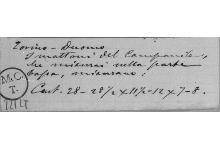 Torino - Duomo
I mattoni del Campanile,
che misurai nella parte
bassa, misurano:
Cent. 28 - 28½ x 11½ - 12 x 7 - 8.
M.C.
T.